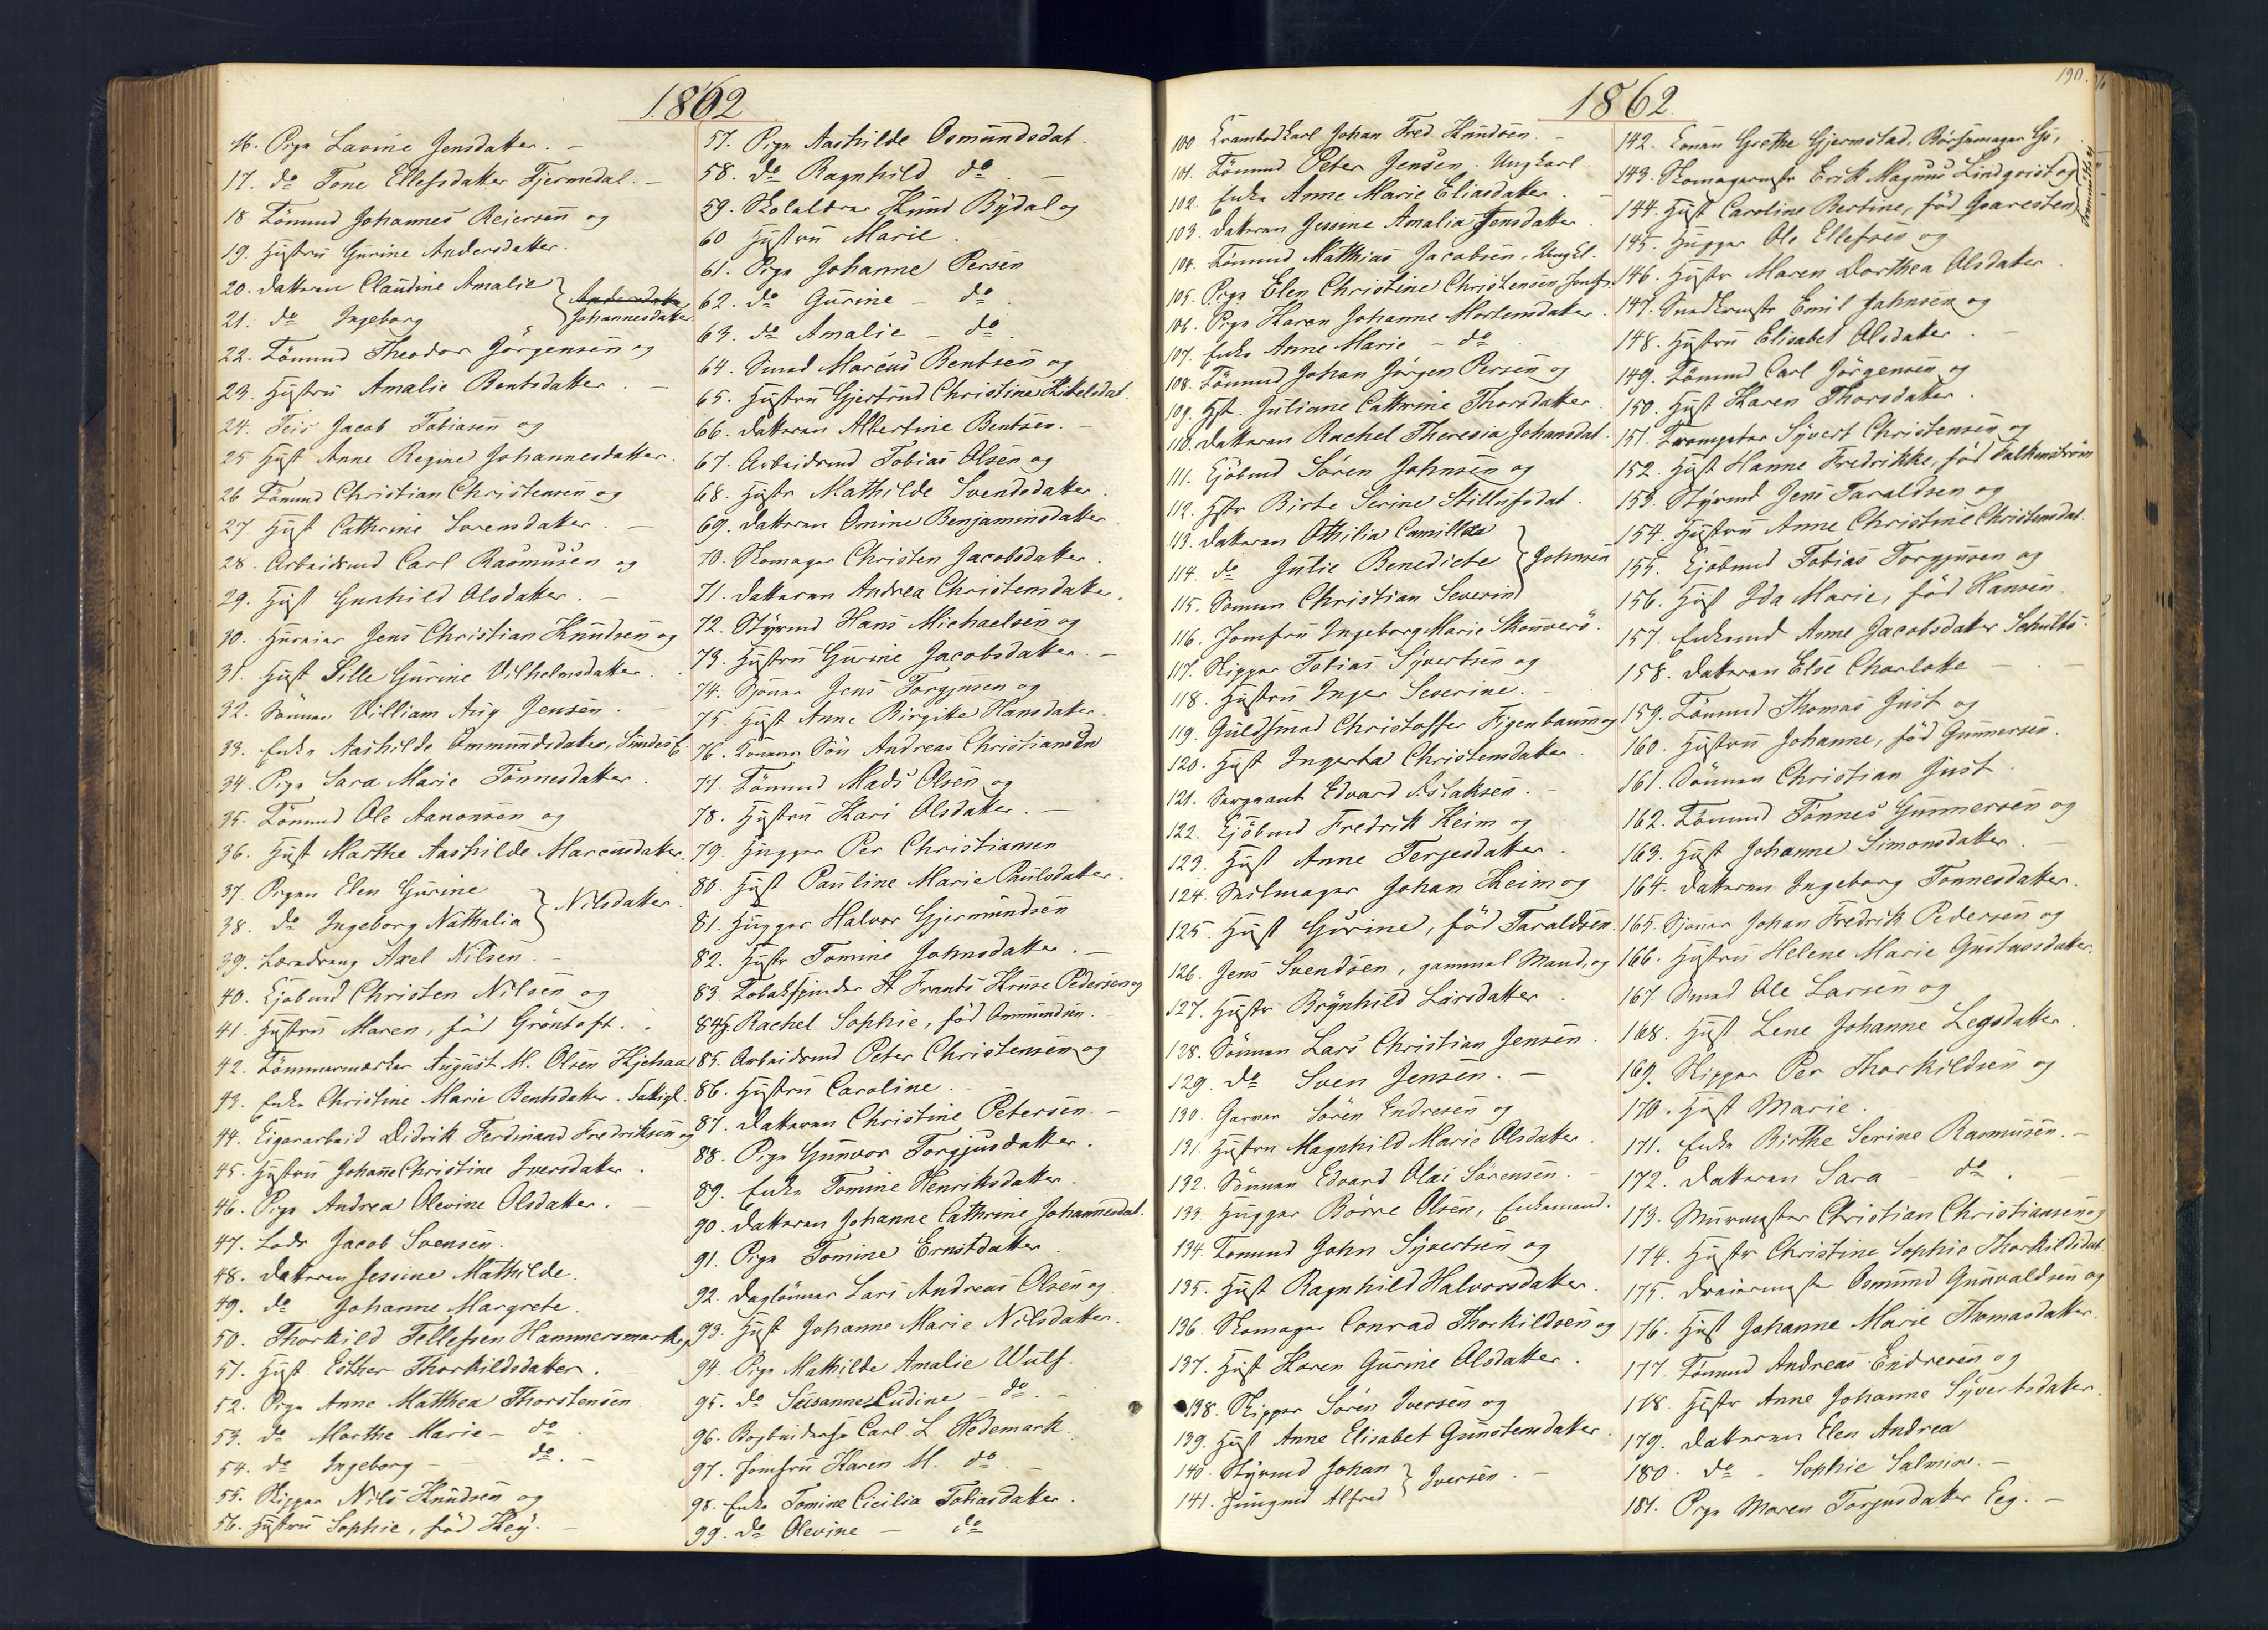 1862
16. Pige Lavine Jensdatter. –
17. do Tone Ellefsdatter Fjermedal. –
18. Tømmd Johannes Reiersen og
19. Hustru Gurine Andersdatter.
20. Datteren Claudine Amalie
21. do Ingeborg
Johannesdatter
22. Tømmd Theodor Jörgensen og
23. Hustru Amalie Bentsdatter. –
24. Feir Jacob Tobiasen og
25. Hust Anne Regine Johannesdatter.
26. Tømmd Christian Christensen og
27. Hust Cathrine Sorensdatter. –
28. Arbeidsmd Carl Rasmusen og
29. Hust Gunhild Olsdatter. –
30. Jens Christian Knudsen og
31. Hust Sille Gurine Vilhelmsdatter.
32. Sönnen Villiam Aug Jensen. –
33. Enke Aashilde Ommundsdatter,
34. Pige Sara Marie Tönnesdatter.
35. Tømmd Ole Aanonsen og
36. Hust Marthe Aashilde Marcusdatter.
37. Pigen Elen Gurine
38. do Ingeborg Nathalia
Nilsdatter
39. Læredreng Axel Nilsen. –
40. Kjøbmd Christen Nilsen og
41. Hustru Maren, fød Gröntoft.
42. Tømmermester August M. Olsen Kjelsaa
43. Enke Christine Marie Bentsdatter.
44. Cigararbeid Didrik Ferdinand Fredriksen og
45. Hustru Johanne Christine Iversdatter.
46. Pige Andrea Olevine Olsdatter. –
47. Lods Jacob Svensen.
48. Datteren Jessine Mathilde.
49. do Johanne Margrete.
50. Thorkild Tellefsen Hammersmark,
51. Hust Esther Thorkildsdatter.
52. Pige Anne Matthea Thorstensen
53. do Marthe Marie – do.
54. do Ingeborg – do. –
55. Skipper Nils Knudsen og
56. Hustru Sophie, fød Hey. –
57. Pige Aashilde Osmundsdat.
58. do Ragnhild do. –
59. Skolelærer Knud Bydal og
60. Hustru Marie.
61. Pige Johanne Persen
62. do Gurine – do.
63. do Amalie – do.
64. Smed Marcus Bentsen og
65. Hustru Gjertrud Christine Mikelsdat.
66. Datteren Albertine Bentsen. –
67. Arbeidsmd Tobias Olsen og
68. Hustr Mathilde Svendsdatter.
69. Datteren Omine Benjaminsdatter
70. Skomager Christen Jacobsdatter.
71. Datteren Andrea Christensdatter.
72. Styrmd Hans Michaelsen og
73. Hustru Gurine Jacobsdatter. –
74. Sjömd Jens Torgjusen og
75. Hust Anne Birgitte Hansdatter.
76. Konens Sön Andreas Christiansen
77. Tømmd Mads Olsen og
78. Hustru Kari Olsdatter. –
79. Hugger Per Christiansen
80. Hust Pauline Marie Paulsdatter.
81. Hugger Halvor Gjermundsen
82. Hustr Tomine Johnsdatter. –
83. Tobakspinder H Frants Kruse Pedersen og
84. H Rachel Sophie, fød Ommundsen.
85. Arbeidsmd Peter Christensen og
86. Hustru Caroline. –
87. Datteren Christine Petersen. –
88. Pige Gunvor Torgjusdatter.
89. Enke Tomine Henriksdatter.
90. Datteren Johanne Cathrine Johannesdat.
91. Pige Tomine Ernstdatter.
92. Daglönner Lars Andreas Olsen og
93. Hust Johanne Marie Nilsdatter.
94. Pige Mathilde Amalie Wulf.
95. do Susanne Ludine – do. –
96. Carl L. Hedemark.
97. Jomfru Karen M. do. –
98. Enke Tomine Cicilia Tobiasdatter.
99. do Olevine – do
1862.
190.
100. Krambodkarl Johan Fred. Knudsen. –
101. Tømmd Peter Jensen. Ungkarl.
102. Enke Anne Marie Eliasdatter. –
103. Datteren Jessine Amalia Jensdatter
104. Tømmd Matthias Jacobsen, Ungkl.
105. Pige Elen Christine Christensen, Jomf.
106. Pige Karen Johanne Mortensdatter.
107. Enke Anne Marie – do
108. Tømmd Johan Jörgen Persen og
109. Hst. Juliane Cathrine Thorsdatter
110. Datteren Rachel Theresia Johansdat.
111. Kjøbmd Sören Johnsen og
112. Hstr Birte Serine Stillufsdat.
113. Datteren Othilia Camilla
114. do Julie Benedicte
115. Sønnen Christian Severin
Johnsen
116. Jomfru Ingeborg Marie Skouverö.
117. Skipper Tobias Syvertsen og
118. Hustru Inger Severine. –
119. Guldsmed Christoffer Figenbaum og
120. Hust Ingerta Christensdatter.
121. Sergeant Edvard Aslaksen. –
122. Kjøbmd Fredrik Heim og
123. Hust Anne Terjesdatter.
124. Seilmager Johan Heim og
125. Hust Gurine, fød Taraldsen.
126. Jens Svendsen, gammel Mand, og
127. Hustr Brynhild Larsdatter.
128. Sönnen Lars Christian Jensen.
129. do Sven Jensen. –
130. Garver Sören Endresen og
131. Hustru Magnhild Marie Olsdatter.
132. Sönnen Edvard Olai Sörensen. –
133. Hugger Börre Olsen, Enkemand.
134. Tømmd John Syvertsen og
135. Hust Ragnhild Halvorsdatter.
136. Skomager Conrad Thorkildsen og
137. Hust Karen Gurine Olsdatter.
138. Skipper Sören Iversen og
139. Hust Anne Elisabet Gunstensdatter.
140. Styrmd Johan
141. Jungmd Alfred
Iversen. –
142. Konen Grethe Gjermstad,
143. Skomagermstr Erik Magnus Lindqvist og
144. Hust Caroline Bertine, fød
145. Hugger Ole Ellefsen og
146. Hustr Maren Dorthea Olsdatter.
147. Snedkermstr Emil Jahnsen og
148. Hustru Elisabet Olsdatter. –
149. Tømmd Carl Jörgensen og
150. Hust Karen Thorsdatter.
151. Trompeter Syvert Christensen og
152. Hust Hanne Fredrikke, fød Falkenström
153. Styrmd Jens Taraldsen og
154. Hustru Anne Christine Christensdat.
155. Kjøbmd Tobias Torgjusen og
156. Hust Ida Marie, fød Hansen.
157. Enkemd Anne Jacobsdatter Schults.
158. Datteren Else Charlotte –
159. Tømmd Thomas Just og
160. Hustru Johanne, fød Gunnersen.
161. Sönnen Christian Just.
162. Tømmd Tönnes Gunnersen og
163. Hust Johanne Simonsdatter. –
164. Datteren Ingeborg Tonnesdatter.
165. Sjömd Johan Fredrik Pedersen og
166. Hustru Helene Marie Gustavsdatter.
167. Smed Ole Larsen og
168. Hust Lene Johanne Legsdatter.
169. Skipper Per Thorkildsen og
170. Hust Marie.
171. Enke Birthe Serine Rasmusen. –
172. Datteren Sara – do. –
173. Murmester Christian Christiansen og
174. Hustr Christine Sophie Thorkildsdat.
175. Dreiermester Osmund Gunvaldsen og
176. Hust Johanne Marie Thomasdatter.
177. Tømmd Andreas Endresen og
178. Hustr Anne Johanne Syvertsdatter.
179. Datteren Elen Andrea
180. do – Sophie Salmine. –
181. Pige Maren Torjusdatter Eeg. –